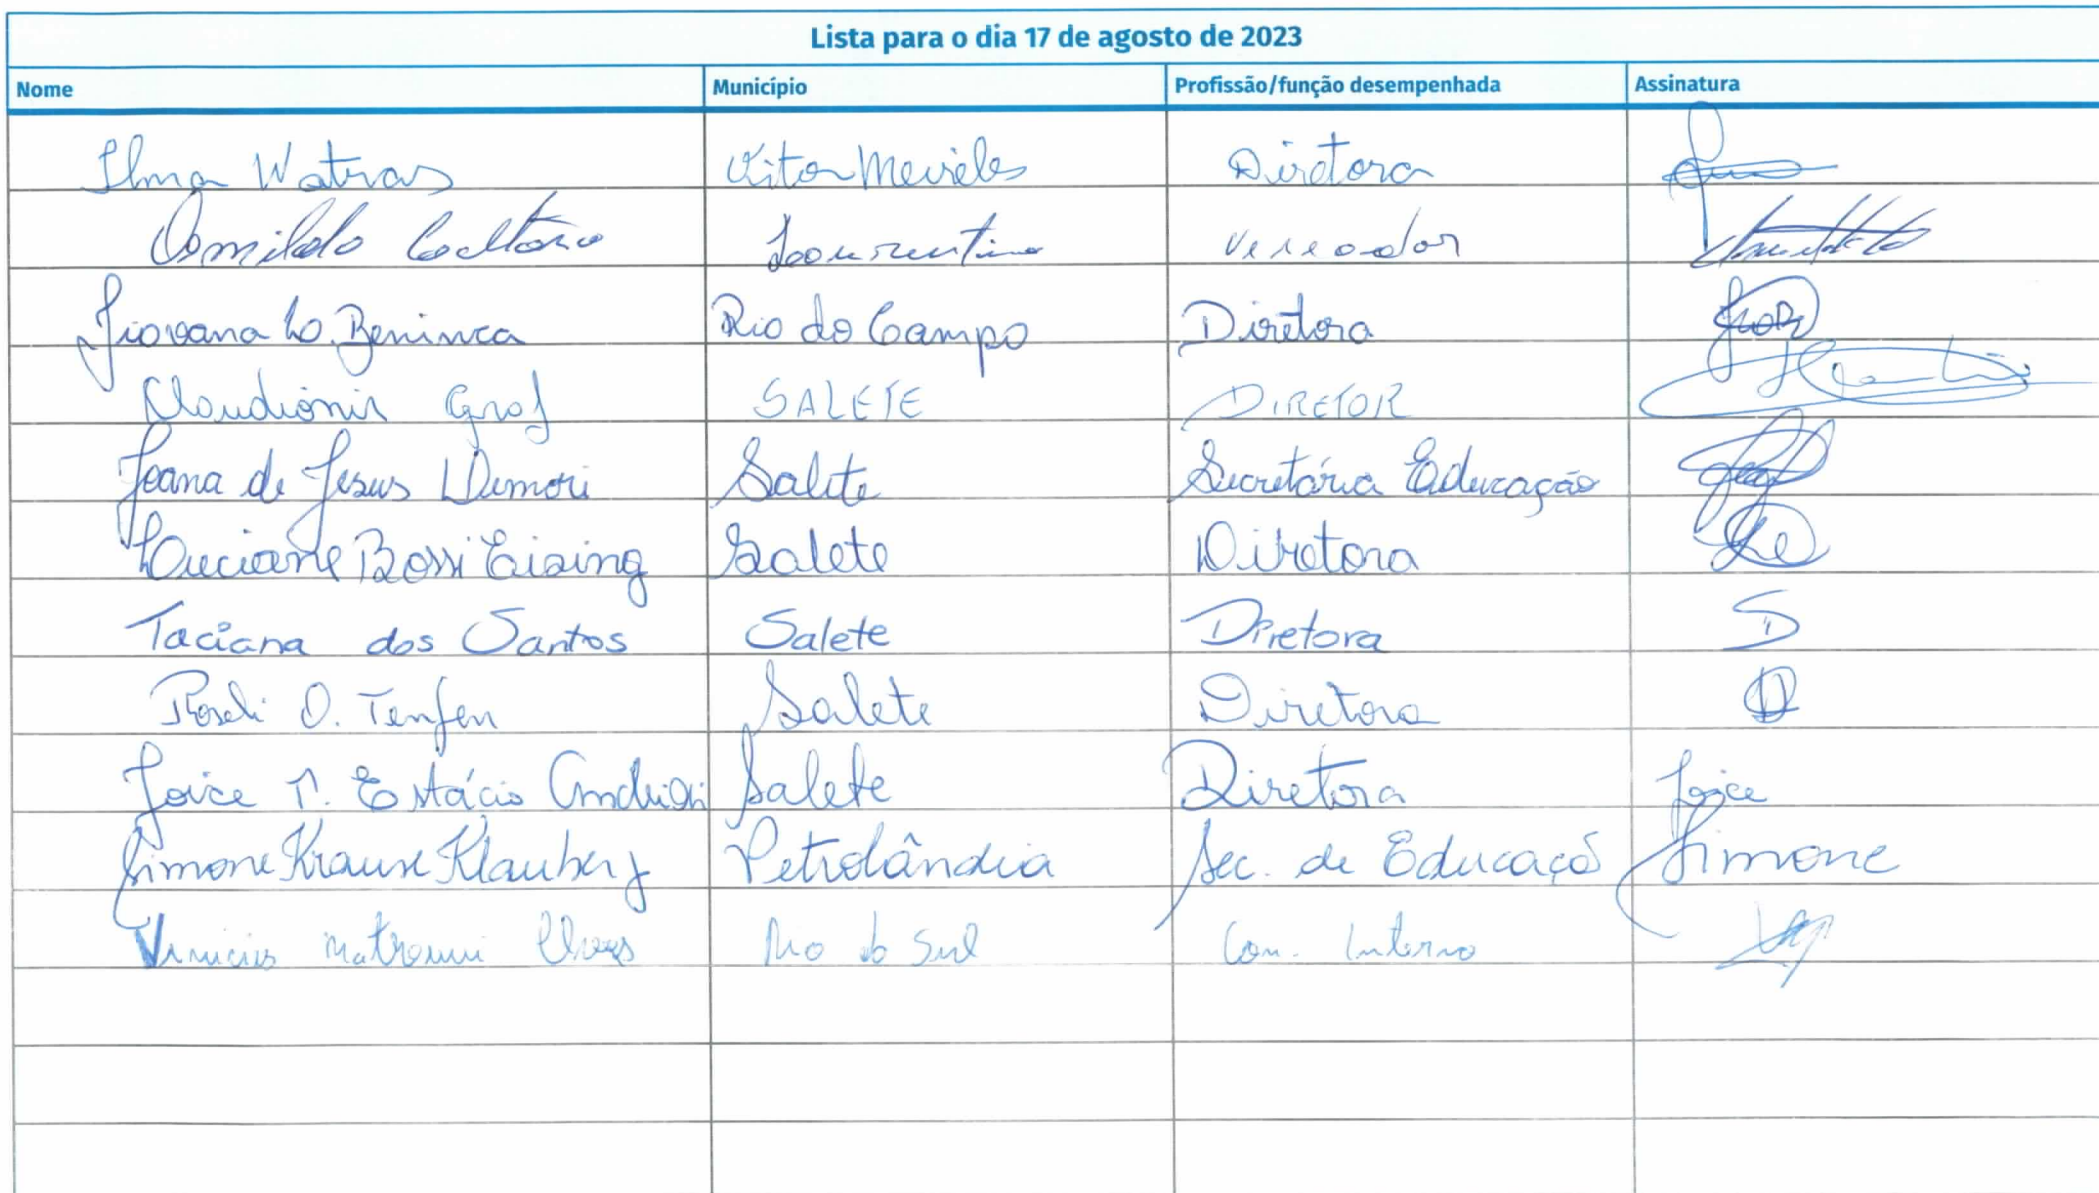 Lista para o dia 17 de agosto de 2023
Nome Município Profissão/função desempenhada Assinatura
Ilma Watras Vitor Meireles Diretora
Osmildo Laurentino Vereador
Giovana Lo. Beninca Rio do Campo Diretora
Claudionir Graf SALETE DIRETOR
Joana de Jesus Demori Salete Secretária Educação
Luciane Bossi Eising Salete Diretora
Taciana dos Santos Salete Diretora
Roseli O. Tenfen Salete Diretora
Joice T. Estácio Salete Diretora Joice
Simone Krause Klauberg Petrolândia Sec. de Educaçã Simone
Vinicius Rio do Sul Con. Interno